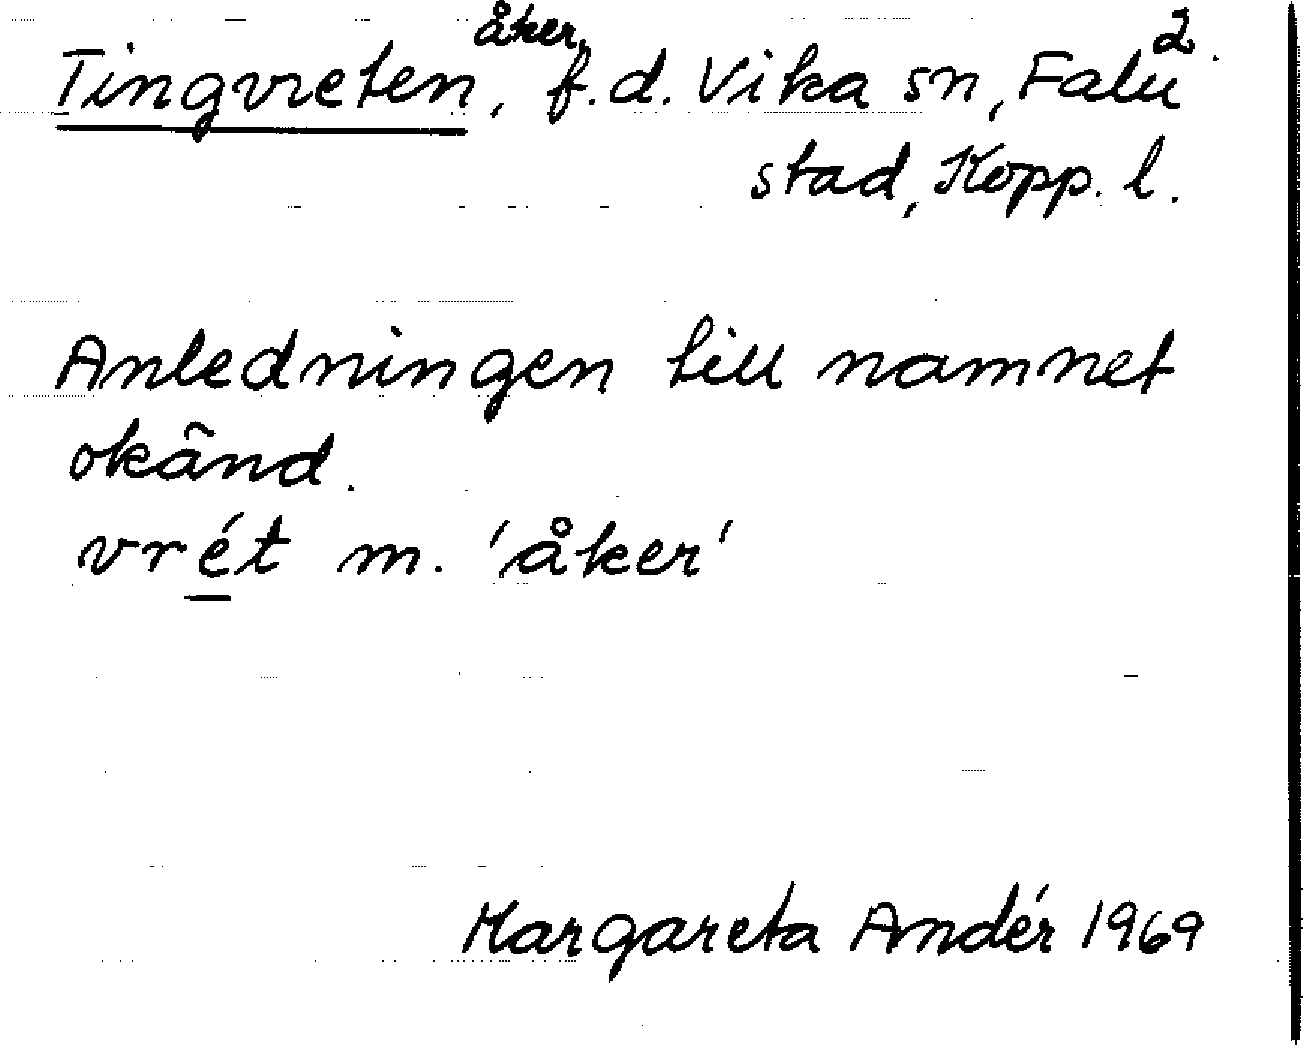 Tingvreten, åker, f.d. Vika sn, Falu 2
stad, Kopp. l.
Anledningen till namnet
okänd.
vrét m. 'åker'
Margareta Andér 1969